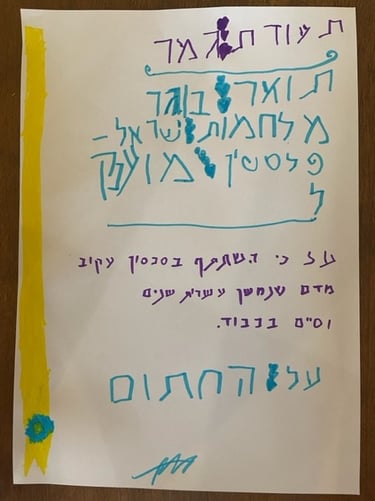 תעודת גמר
תואר בוגר
מלחמות ישראל –
פלסטין מוענק
ל
על כי השתתף בסכסוך עקוב
מדם שנמשך עשרות שנים
וסיים בכבוד.
על החתום